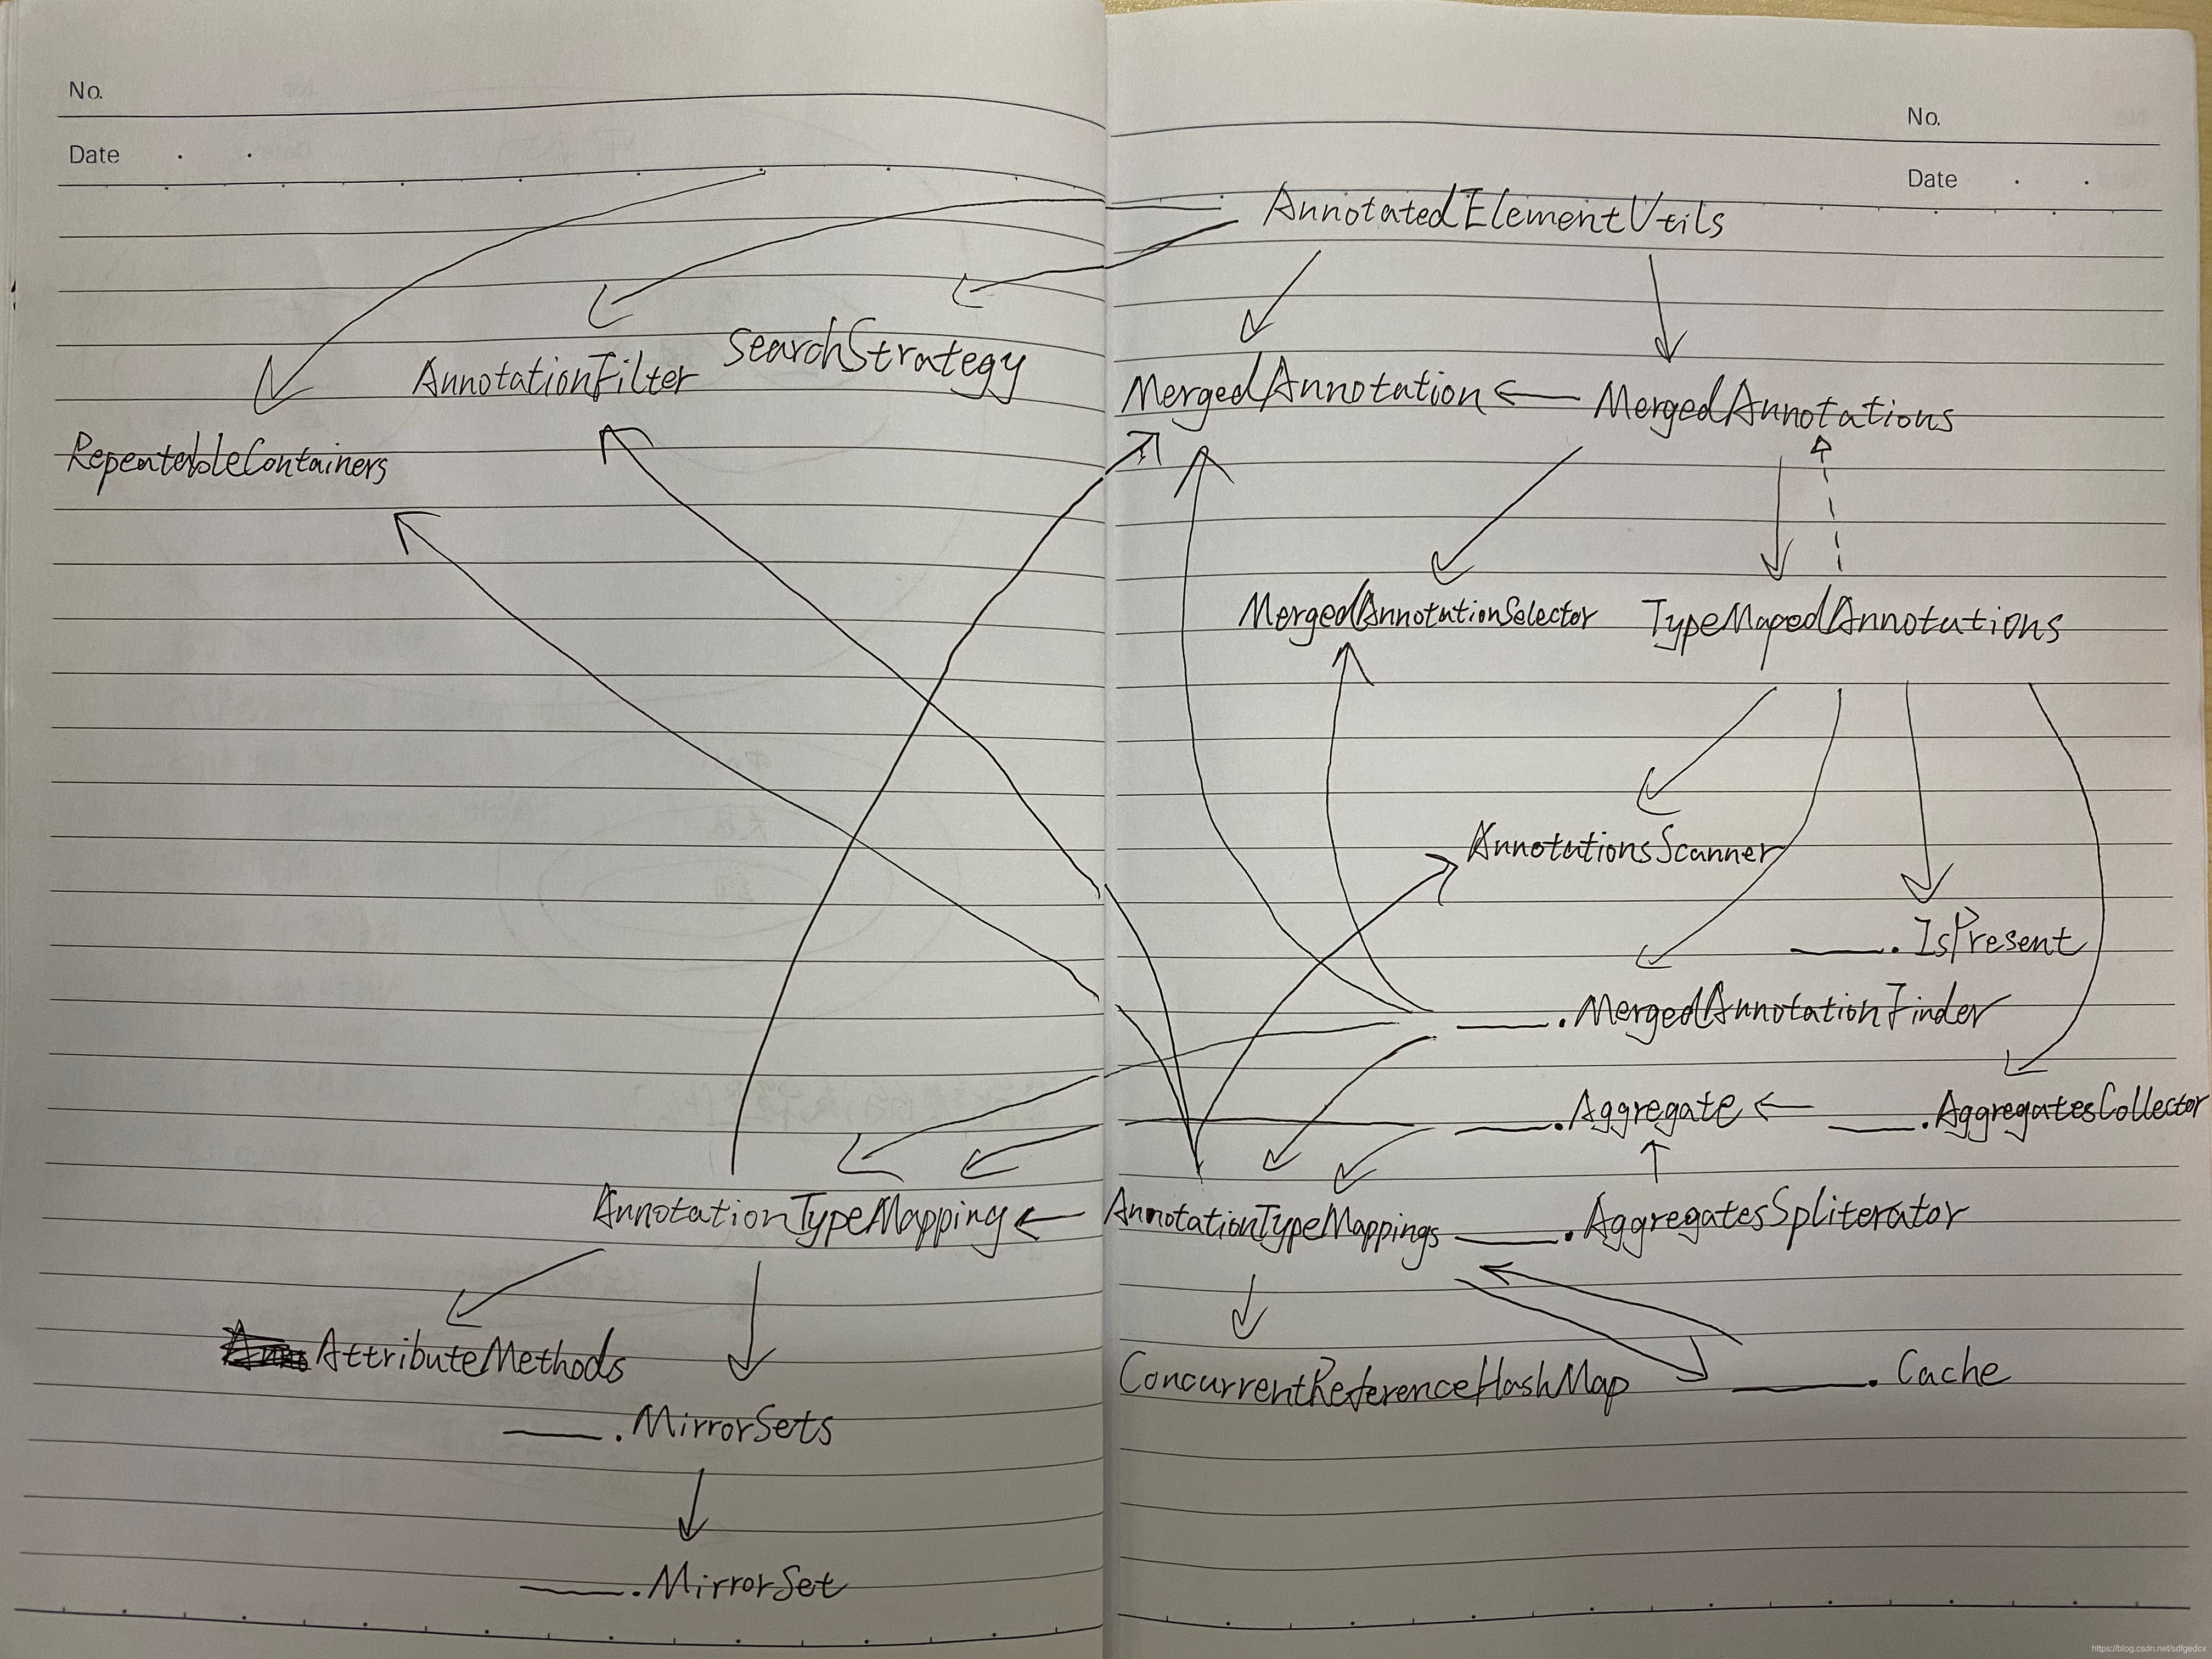 No.
Date
No.
Date
AnnotatedElementUtils
SearchStrategy
AnnotationFilter
RepeatableContainers
MergedAnnotation
MergedAnnotations
MergedAnnotationSelector
TypeMapedAnnotations
AnnotationsScanner
____.IsPresent
____.MergedAnnotationFinder
____.Aggregate
____.AggregatesCollector
AnnotationTypeMapping
AnnotationTypeMappings
____.AggregatesSpliterator
AttributeMethods
ConcurrentReferenceHashMap
____.Cache
____.MirrorSets
____.MirrorSet
https://blog.csdn.net/sdfgedcx